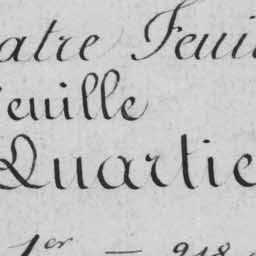 atre Feui
euille
Quartie
1er — 918